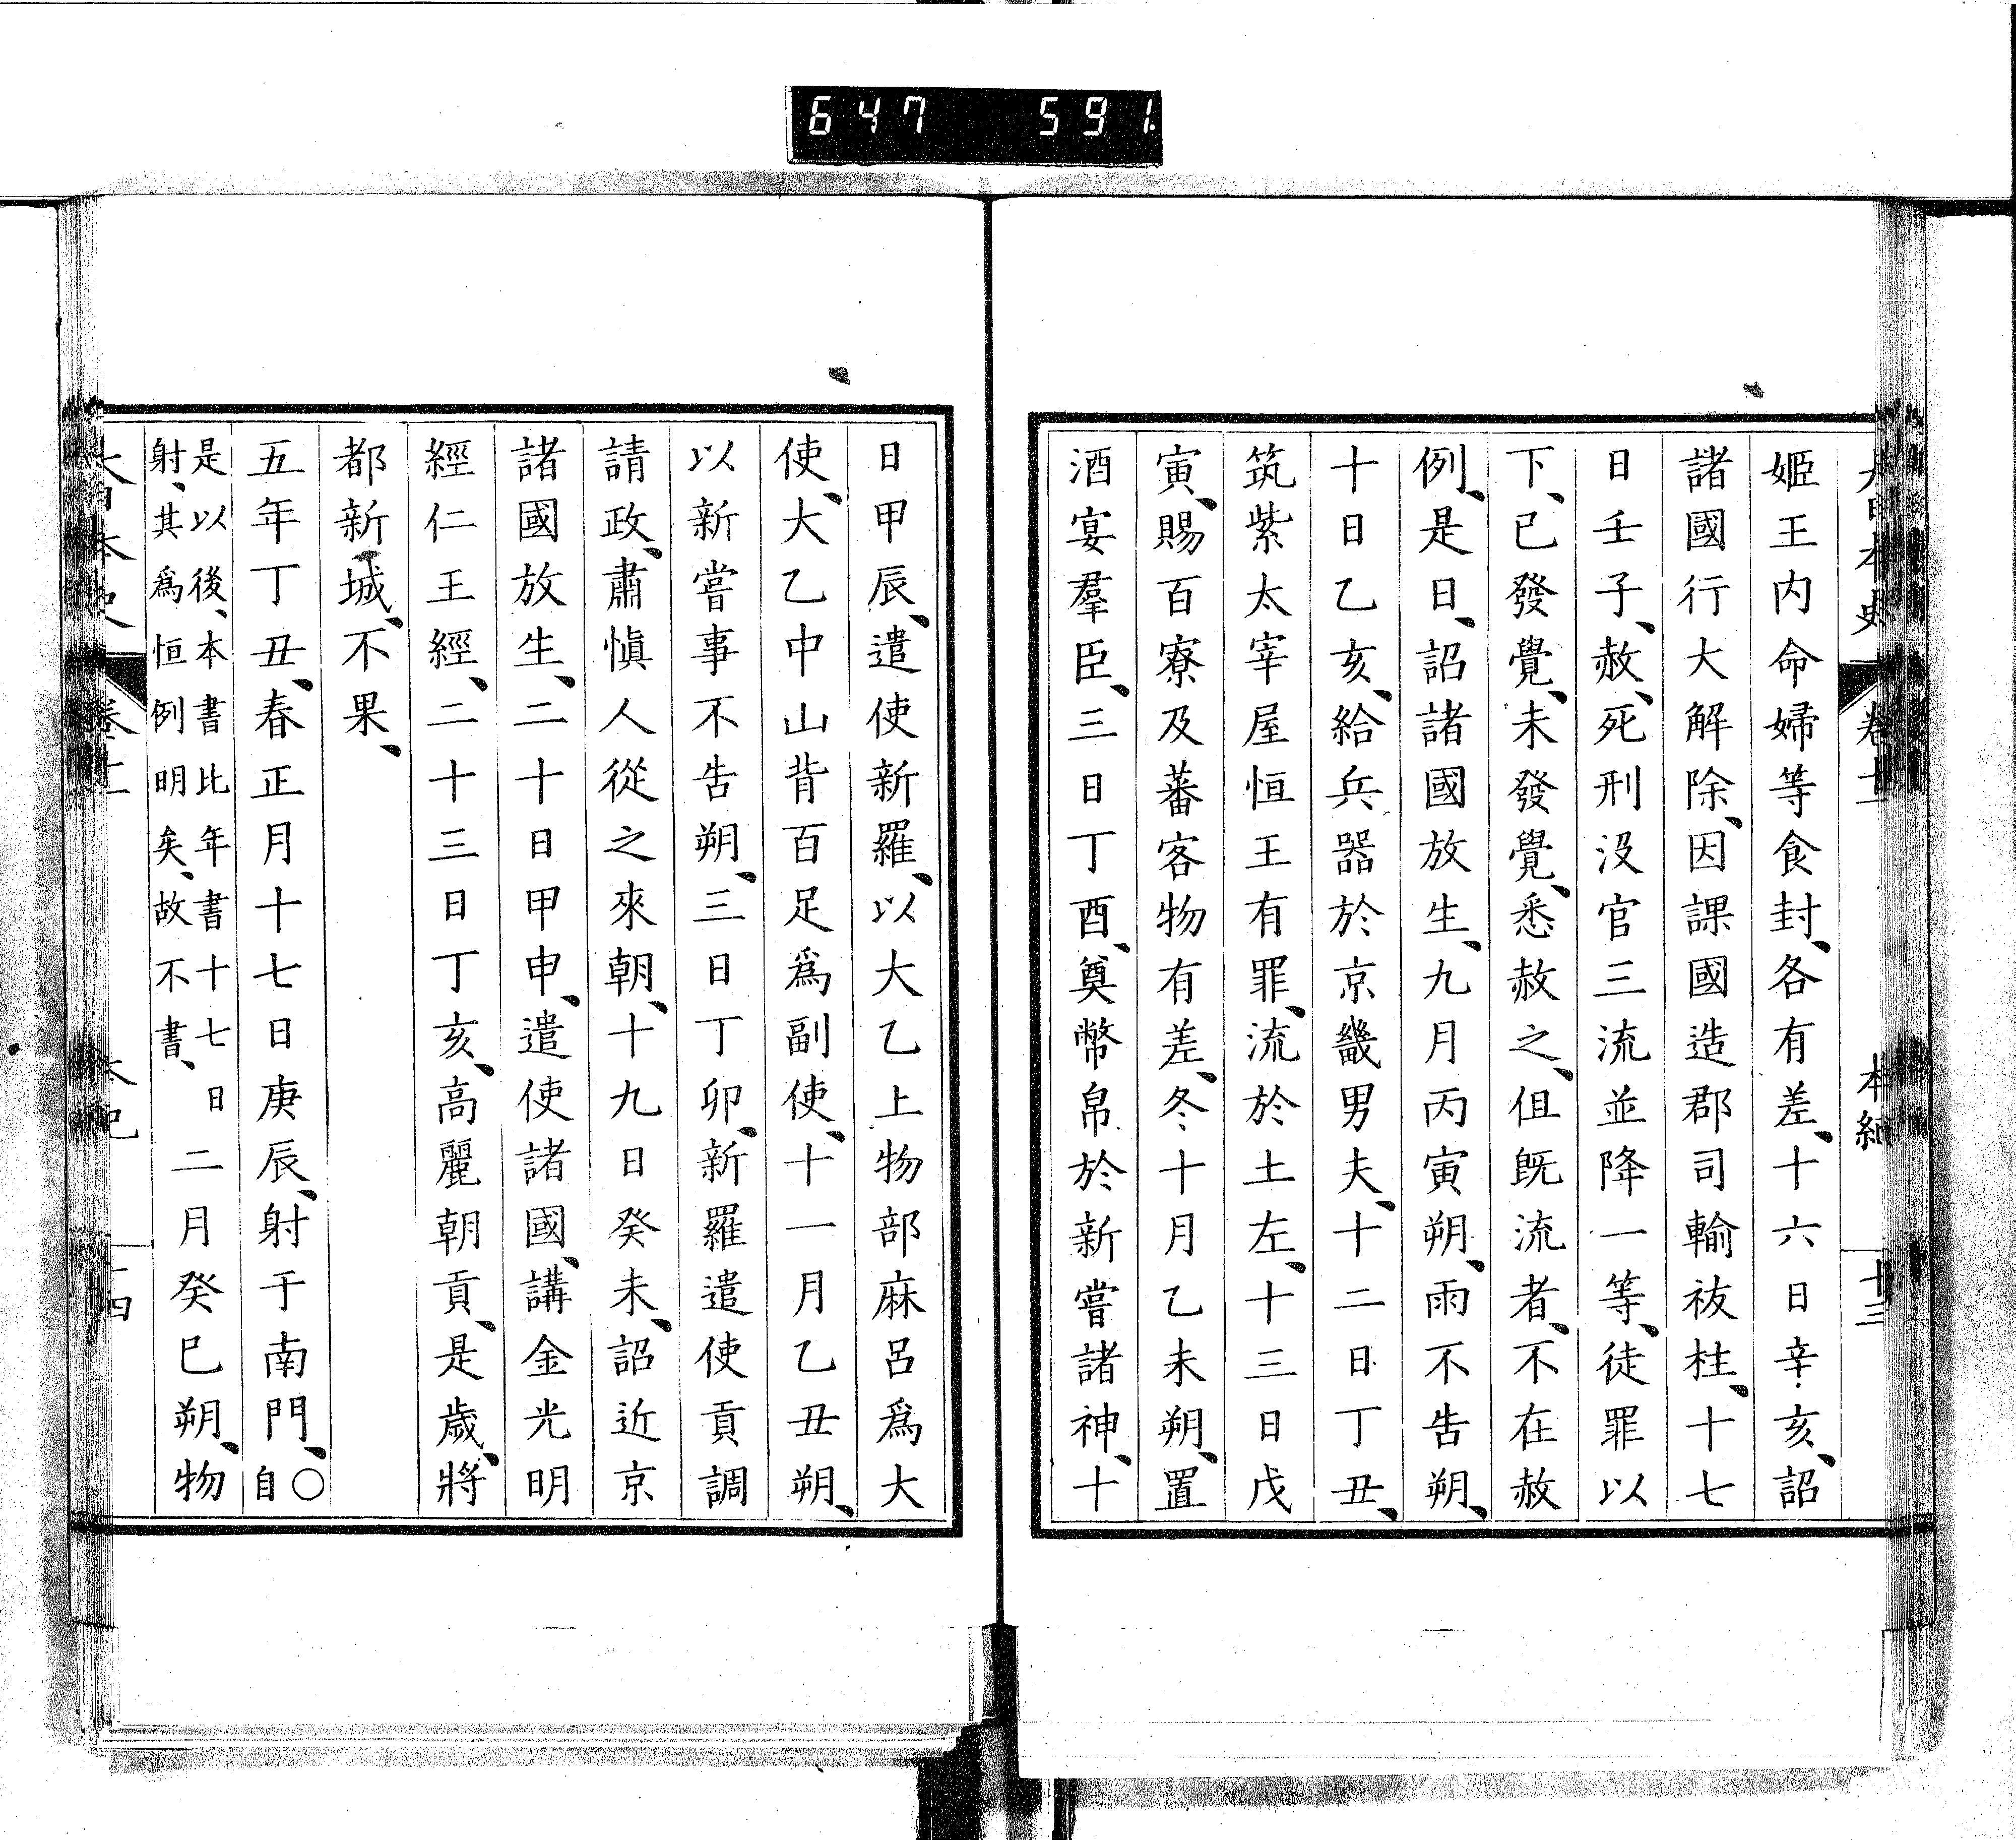 647 591
大日本史 卷十一 本紀 十三
姬王内命婦等食封、各有差、十六日辛亥、詔
諸國行大解除、因課國造郡司輸祓柱、十七
日壬子、赦、死刑沒官三流並降一等、徒罪以
下、已發覺、未發覺、悉赦之、但既流者、不在赦
例、是日、詔諸國放生、九月丙寅朔、雨不告朔、
十日乙亥、給兵器於京畿男夫、十二日丁丑、
筑紫太宰屋恒王有罪、流於土左、十三日戊
寅、賜百寮及蕃客物有差、冬十月乙未朔、置
酒宴羣臣、三日丁酉、奠幣帛於新嘗諸神、十
日甲辰、遣使新羅、以大乙上物部麻呂爲大
使、大乙中山背百足爲副使、十一月乙丑朔、
以新嘗事不告朔、三日丁卯、新羅遣使貢調
請政、肅愼人從之來朝、十九日癸未、詔近京
諸國放生、二十日甲申、遣使諸國、講金光明
經仁王經、二十三日丁亥、高麗朝貢、是歲、將
都新城、不果、
五年丁丑、春正月十七日庚辰、射于南門、○自
是以後、本書比年書十七日
射、其爲恒例明矣、故不書、二月癸巳朔、物
大日本史 卷十一 本紀 十四